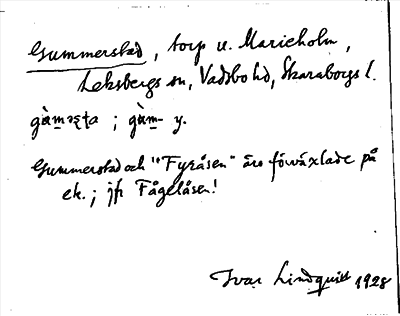 Gummerstad, torp u. Marieholm,
Leksbergs sn, Vadsbo hd, Skaraborgs l.
gàməsta ; gùm- y.
Gummerstad och "Fyråsen" äro förväxlade på
ek. ; jfr Fågelåsen!
Ivar Lindquist 1928